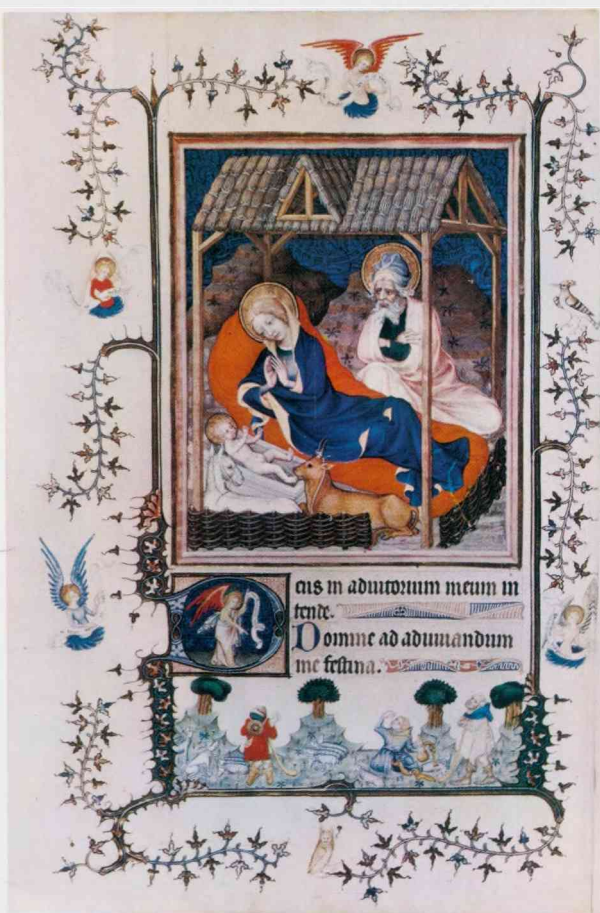 Deus in adiutorium meum in
tende.
Domine ad adiuuandum
me festina.